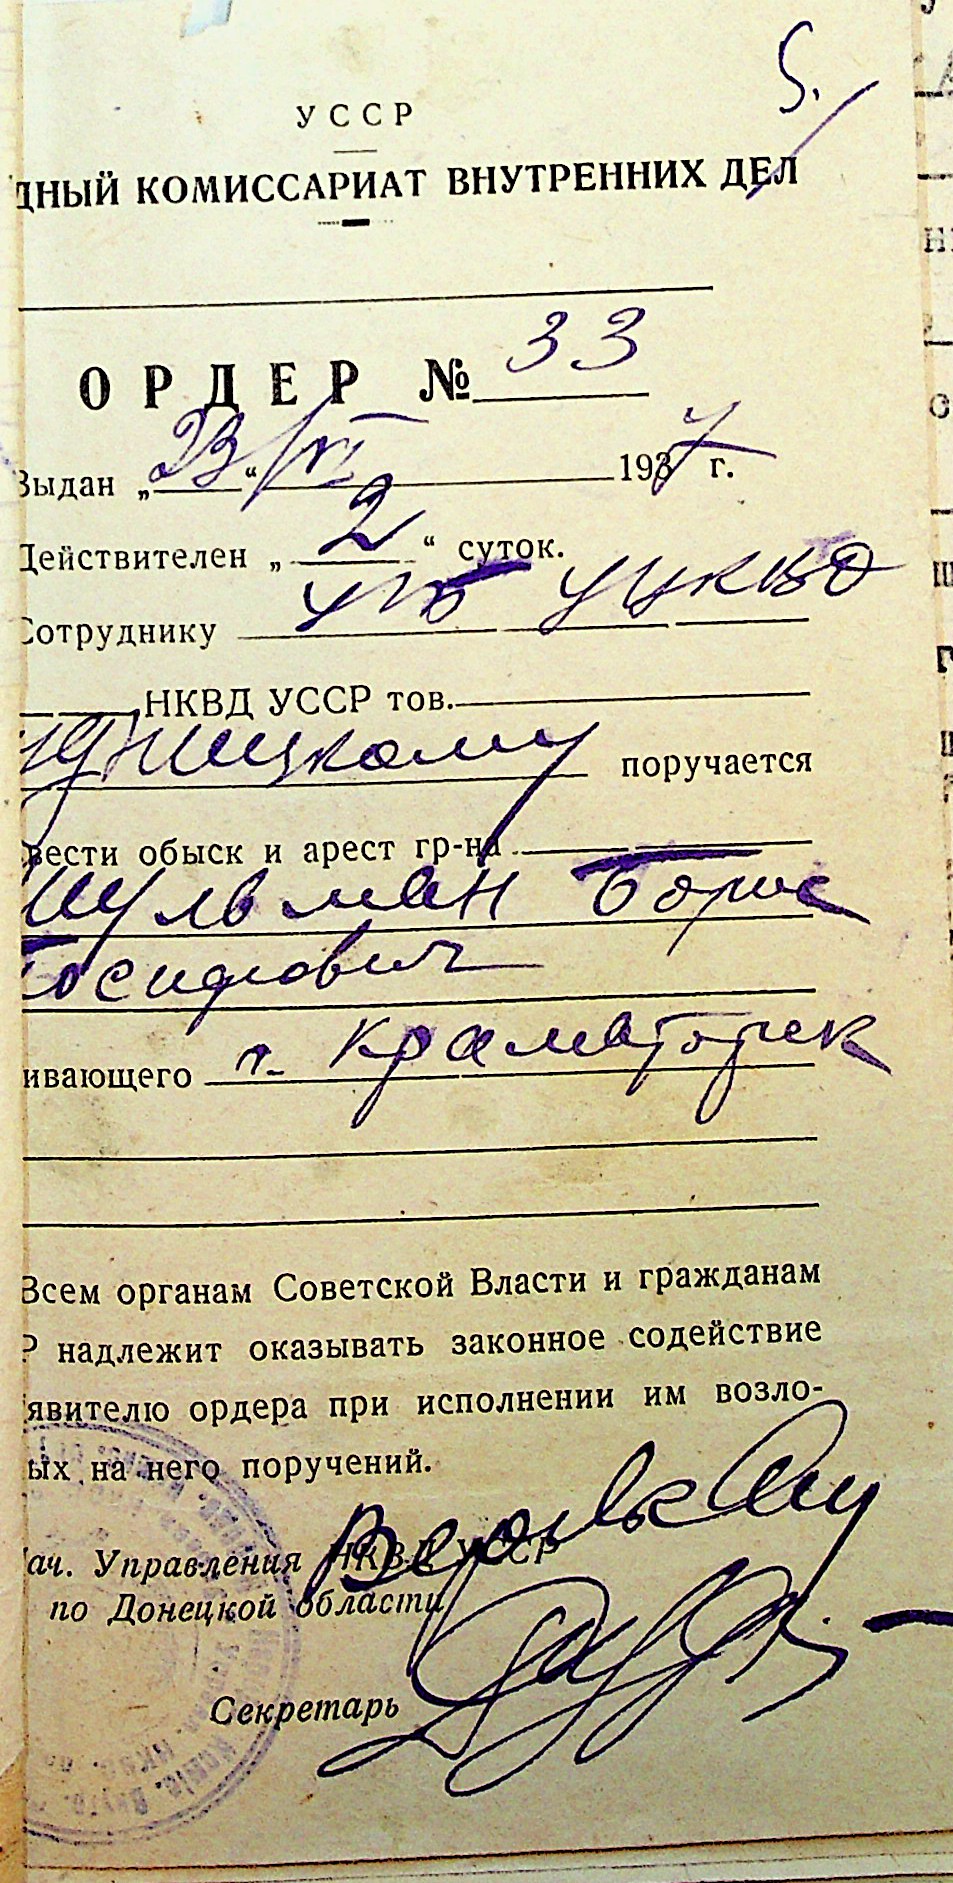 5.
УССР
ДНЫЙ КОМИССАРИАТ ВНУТРЕННИХ ДЕЛ
ОРДЕР № 33
Выдан „23“ VI 1937 г.
Действителен „2“ суток.
Сотруднику УГБ УНКВД
НКВД УССР тов.
поручается
вести обыск и арест гр-на
Шульман Борис
Иосифович
ивающего г. Краматорск
Всем органам Советской Власти и гражданам
Р надлежит оказывать законное содействие
явителю ордера при исполнении им возло-
ых на него поручений.
ач. Управления НКВД УССР
по Донецкой области
Секретарь